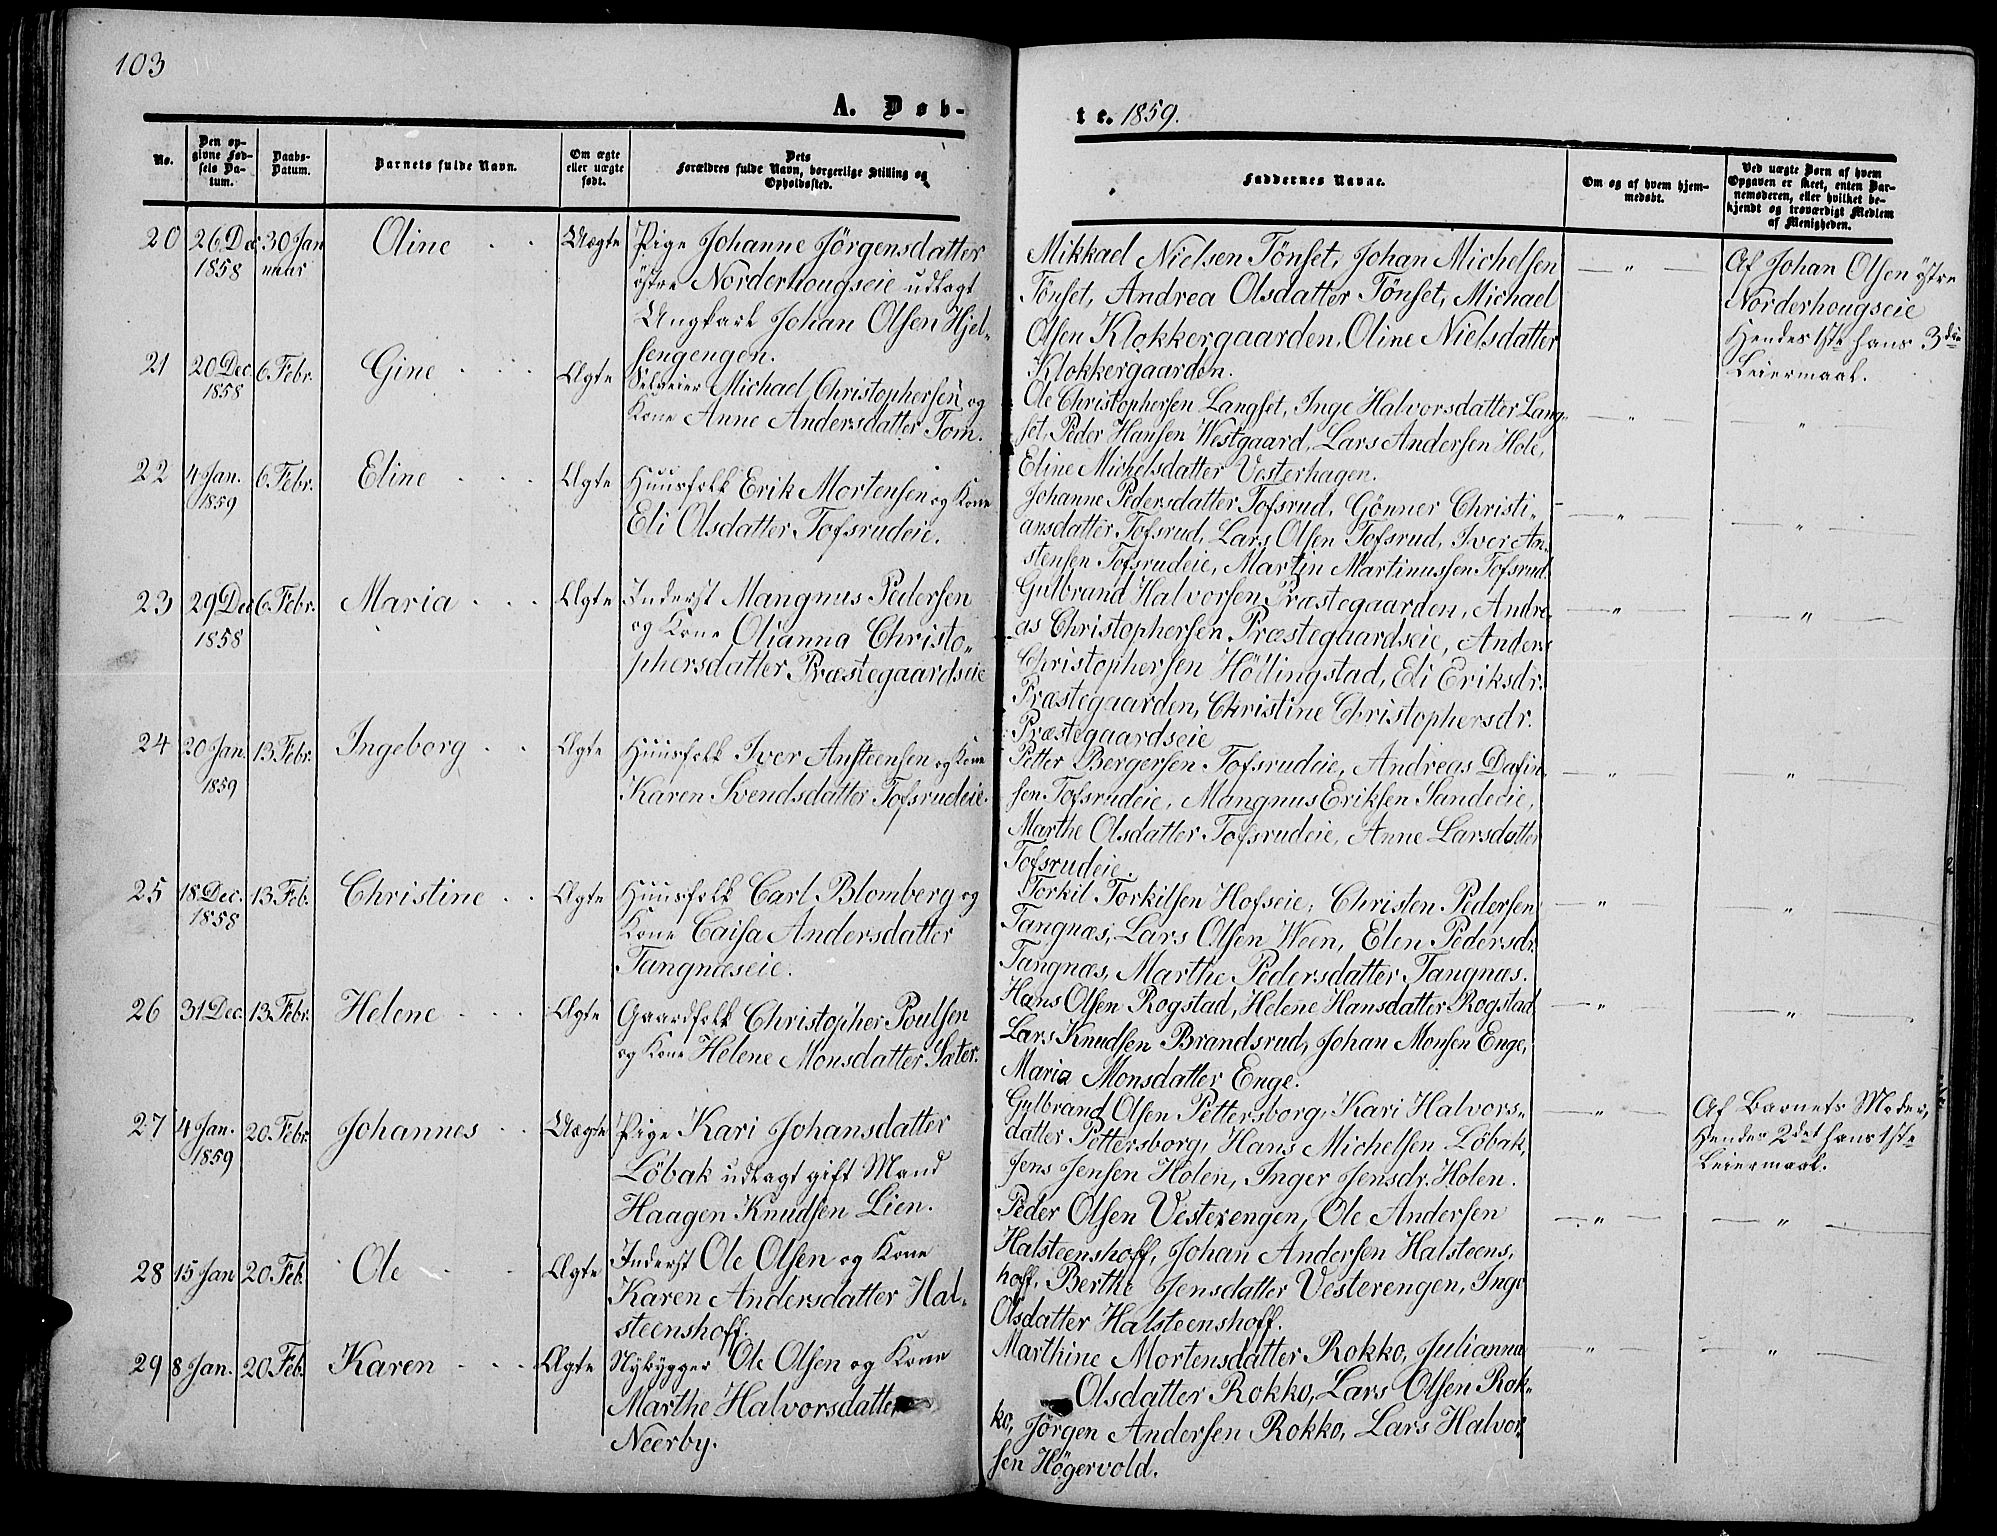 103
A. Døb-
te. 1859.
No.
Den op-
givne Fød-
sels Da-
tum.
Daabs-
Datum.
Barnets fulde Navn.
Om ægte
eller uægte
født.
Dets
Forældres fulde Navn, borgerlige Stilling og
Opholdssted.
Faddernes Navne.
Om og af hvem hjem-
medøbt.
Ved uægte Børn af hvem
Opgaven er skeet, enten Bar-
nemoderen, eller hvilket be-
kjendt og troværdigt Medlem
af Menigheden.
20 26 Dec 30 Jan Oline Uægte Pige Johanne Jörgensdatter
1858 nuar östre Norderhougseie udlagt
Ungkarl Johan Olsen Hjel-
sengengen.
Mikkael Nielsen Tönset, Johan Michelsen
Tönset, Andrea Olsdatter Tönset, Michael
Olsen Klokkergaarden, Oline Nielsdatter
Klokkergaarden.
Af Johan Olsen östre
Norderhougseie
Hendes 1ste hans 3die
Leiermaal.
21 20 Dec 6 Febr. Gine Ægte Selveier Michael Christophersen og
1858 Kone Anne Andersdatter Tom.
Ole Christophersen Langset, Inge Halvorsdatter Lang-
set, Peder Hansen Westgaard, Lars Andersen Hole,
Eline Michelsdatter Vesterhagen.
22 4 Jan. 6 Febr. Eline Ægte Huusfolk Erik Mortensen og Kone
1859 Eli Olsdatter Tofsrudeie.
Johanne Pedersdatter Tofsrud, Gönner Christi-
ansdatter Tofsrud, Lars Olsen Tofsrud, Iver An-
stensen Tofsrudeie, Martin Martinussen Tofsrud.
23 29 Dec 6 Febr. Maria Ægte Inderst Mangnus Pedersen
1858 og Kone Olianna Christo-
phersdatter Præstegaardseie
Gulbrand Halvorsen Præstegaarden, Andre-
as Christophersen Præstegaardseie, Anders
Christophersen Höllingstad, Eli Eriksdr.
Præstegaarden, Christine Christophersdr.
Præstegaardseie
24 20 Jan. 13 Febr. Ingeborg Ægte Huusfolk Iver Ansteensen og Kone
1859 Karen Svendsdatter Tofsrudeie.
Petter Bergersen Tofsrudeie, Andreas Dafin-
sen Tofsrudeie, Mangnus Eriksen Sandeeie,
Marthe Olsdatter Tofsrudeie, Anne Larsdatter
Tofsrudeie.
25 18 Dec. 13 Feb. Christine Ægte Huusfolk Carl Blomberg og
1858 Kone Caisa Andersdatter
Tangnæseie.
Torkil Torkilsen Hofseie, Christen Pedersen
Tangnæs, Lars Olsen Ween, Elen Pedersdr.
Tangnæs, Marthe Pedersdatter Tangnæs.
26 31 Dec. 13 Febr. Helene Ægte Gaardfolk Christopher Poulsen
og Kone Helene Monsdatter Sæter.
Hans Olsen Rogstad, Helene Hansdatter Rogstad
Lars Knudsen Brandsrud, Johan Monsen Enge,
Maria Monsdatter Enge.
27 4 Jan. 20 Febr Johannes Uægte Pige Kari Johansdatter
1859 Löbak udlagt gift Mand
Haagen Knudsen Lien.
Gulbrand Olsen Pettersborg, Kari Halvors-
datter Pettersborg, Hans Michelsen Löbak,
Jens Jensen Holen, Inger Jensdr. Holen.
Af Barnets Moder,
Hendes 2det hans 1ste
Leiermaal.
28 15 Jan 20 Feb. Ole Ægte Inderst Ole Olsen og Kone
Karen Andersdatter Hal-
steenshoff.
Peder Olsen Vesterengen, Ole Andersen
Halsteenshoff, Johan Andersen Halsteens-
hoff, Berthe Jensdatter Vesterengen, Inge
Olsdatter Halsteenshoff.
29 8 Jan. 20 Feb. Karen Ægte Nybygger Ole Olsen og Kone
Marthe Halvorsdatter
Neerby.
Marthine Mortensdatter Rokko, Julianna
Olsdatter Rokko, Lars Olsen Rok-
ko, Jörgen Andersen Rokko, Lars Halvor-
sen Högervold.